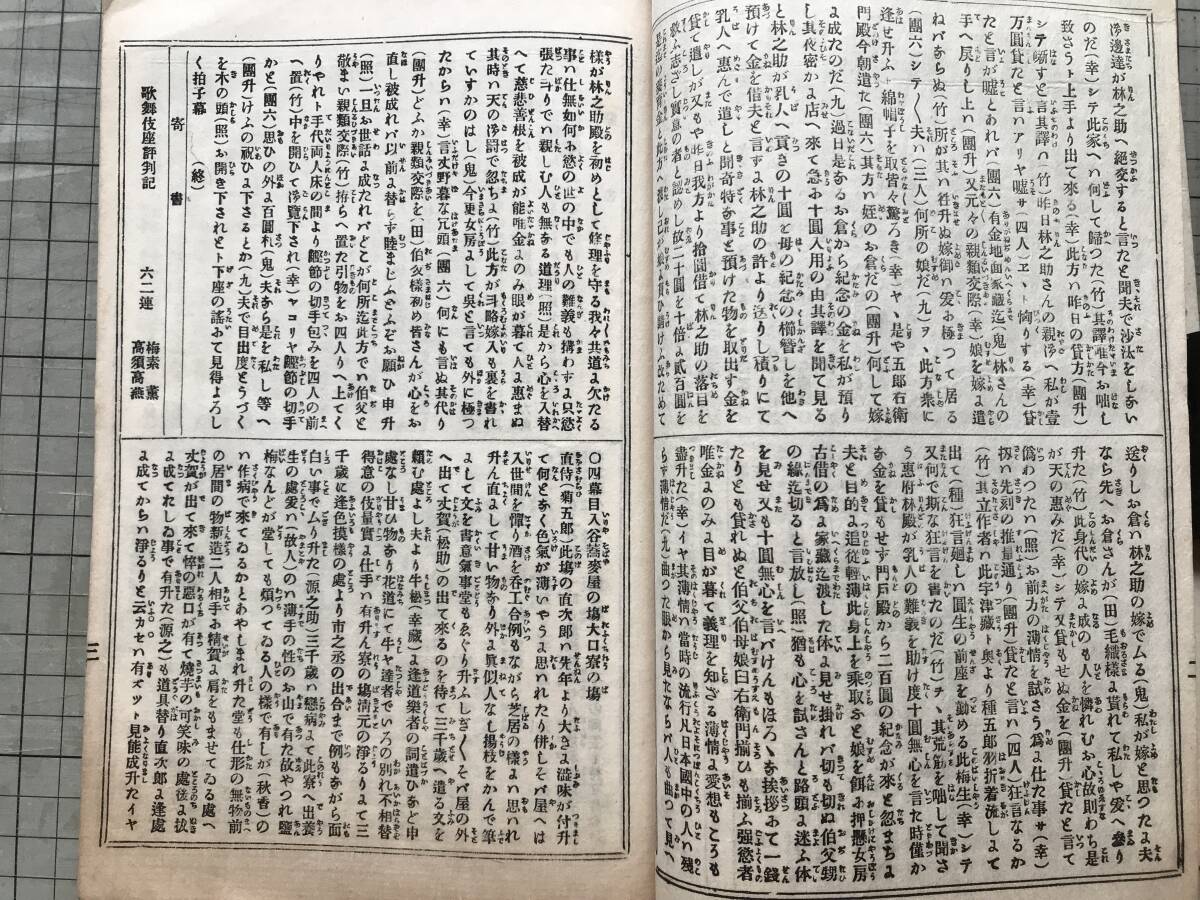 渉邊達が林之助へ絶交すると言たと聞夫で沙汰をしない
のだ(幸)シテ此家へハ何して歸つた(竹)其譯ハ唯今お咄し
致さうト上手より出て來る(幸)此方ハ昨日の貸方(團升)
シテ噺すと言其譯ハ(竹)昨日林之助さんの親渉へ私が壹
万圓貸たと言ハアリャ嘘サ(四人)ヱヽト恟りする(幸)貸
たと言が嘘とあれバ(團六)有金地面家藏迄(鬼)林さんの
手へ戻りし上ハ(團升)又元々の親類交際(幸)娘を嫁に遣
ねバならぬ(竹)所が其ハ娘御ハ愛お極つて居る
(團六)シテ〱夫ハ(三人)何所の娘だ(九)ヲヽ此方衆に
逢せ升ふト綿帽子を取皆々驚ろき(幸)ヤヽ是や五郎右衛
門殿今朝遣た(團六)其方ハ姪のお倉だの(團升)何して嫁
に成たのだ(九)過日是なるお倉から紀念の金を私が預り
し其夜密か店へ來て急に十圓入用の由其譯を聞て見る
と林之助が乳人へ貢さの十圓ト母の紀念の櫛簪しを他へ
預けて金を借夫と言ず林之助の許より送りし積りにて
乳人へ惠んで遣しと聞奇特な事と預けた物を取出す金を
貸て遣しが又もや昨日我方より拾圓借て林之助の落目を
救ふ志ざし實意の者と認めし故二十圓を十倍に貳百圓を
送りしお倉ハ林之助の嫁でムる(鬼)私が嫁と思つたに夫
なら先へお倉さんが(田)毛織様に貰れて私しや愛へ參り
升た(竹)此身代の嫁に成のも人を憐れむお心故則わち是
が天の惠みだ(幸)シテ又貸もせぬ金を(團升)貸たと言て
僞わつたハ(照)お前方の薄情を試さう爲に仕た事サ(幸)
扨ハ先刻の推量通り(團升)貸たと言ハ(四人)狂言なるか
(竹)其立作者ハ此宇津藏ト奥より種五郎羽折着流しまて
出て(種)狂言廻しハ圓生の前座を勤める此梅生(幸)シテ
又何で斯な狂言を書たのだ(竹)ヲヽ其荒筋を咄して聞さ
う惠府林殿が乳人の難義を助け度十圓無心を言た時僅か
な金を貸もせず門戸殿から二百圓の紀念が來と忽まちに
夫と目的に追從輕薄此身上を乘取ふと娘を餌に押懸女房
古借の爲に家藏迄渡した体に見せ掛れバ切も切ぬ伯父甥
の縁迄切ると言放し(照)猶も心を試さんと路頭に迷ふ体
を見せ又も十圓無心を言バけんもほろゝな挨拶おて一錢
たりとも貸れぬと伯父伯母娘曰右衛門揃ひも揃ふ強慾者
唯金よのみに目が暮て義理を知ざる薄情に愛想もこらも
盡升た(幸)イヤ其薄情ハ當時の流行凡日本國中の人ハ殘
らず薄情だ(九)曲つた眼から見たならバ人も曲つて見へ
様が林之助殿を初めとして條理を守る我々共道に欠たる
事ハ仕無如何お慾の世の中でも人の難義も搆わず只慾
張た斗りでハ親しむ人も無なる道理(照)是から心を入替
へて慈悲善根を被成が能唯金よのみ眼が暮て人に惠まぬ
其時ハ天の渉罰で忽ちに(竹)此方が計略嫁入も裏を書れ
ていすかのはし(鬼)今更女房よして呉と言ても外に極つ
たからハ(幸)言丈野暮な冗頭(團六)何にも言ぬ其代り
(團升)どふか親類交際を(田)伯父様初め皆さんが心をお
直し被成れバ以前に替らず睦ましふとふぞお願ひ申升
(照)一旦お世話に成たれバどこが何所迄此方でハ伯父と
敬まい親類交際(竹)拵らへ置た引物をお四人りへ上てく
りやれト手代両人床の間より鰹節の切手包みを四人の前
へ置(竹)ハ中を開ひて渉覽下され(幸)ャコリヤ鰹節の切手
かと(團六)思ひの外に百圓札(鬼)夫なら是を私し等へ
(團升)けふの祝ひに下さるとめ(九)夫で目出度とうづく
を木の頭(照)お開き下されとト下座の謠おて見得よろし
く拍子幕　　　　(終)
寄書
歌舞伎座評判記　　六二連　梅素薫
高須高燕
〇四幕目入谷蕎麥屋の塲大口寮の塲
直侍(菊五郎)此塲の直次郎ハ先年より大きに澁味が付升
て何となく色氣が薄いやうに思いれたり併しそバ屋へは
入世間を憚り酒を呑工合例もながら芝居の樣に思いれ
升ん直よして甘い物なり外に眞似人なし揚枝をかんで筆
よして文を書意氣事堂もゑゝり升ふしぎ〱そバ屋の外
へ出て丈賀(松助)の出て來るのを待て三千歳へ遣る文を
頼む處よし夫より牛松(幸藏)に逢道樂者の詞遣ひなど申
處なし甘ひ物なり花道にて牛や達者でいろの別れ不相替
得意の伎量實に仕手ハ有升ん寮の塲清元の淨るりまて三
千歳に逢色摸樣の處より市之丞の出るまで例もながら面
白い事でムり升た(源之助)三千歳ハ戀病よて此寮へ出養
生の處愛ハ(故人)のハ薄手の性のお山で有た故やつれ鹽
梅なんどが堂しても煩つてゐる人の樣で有しが(秋香)の
ハ作病で來てゐるかとあやしまれ升た堂も仕形の無物前
の居間の物新造二人相手お精賀に肩をもませてゐる處へ
丈賀が出て來て悴の惡口が有て燒芋の可笑味の處後に抜
に成てれしゐ事で有升た(源之)も道具替り直次郎に逢處
に成てからハ淨るりと云カセハ有ズット見能成升たイヤ
三